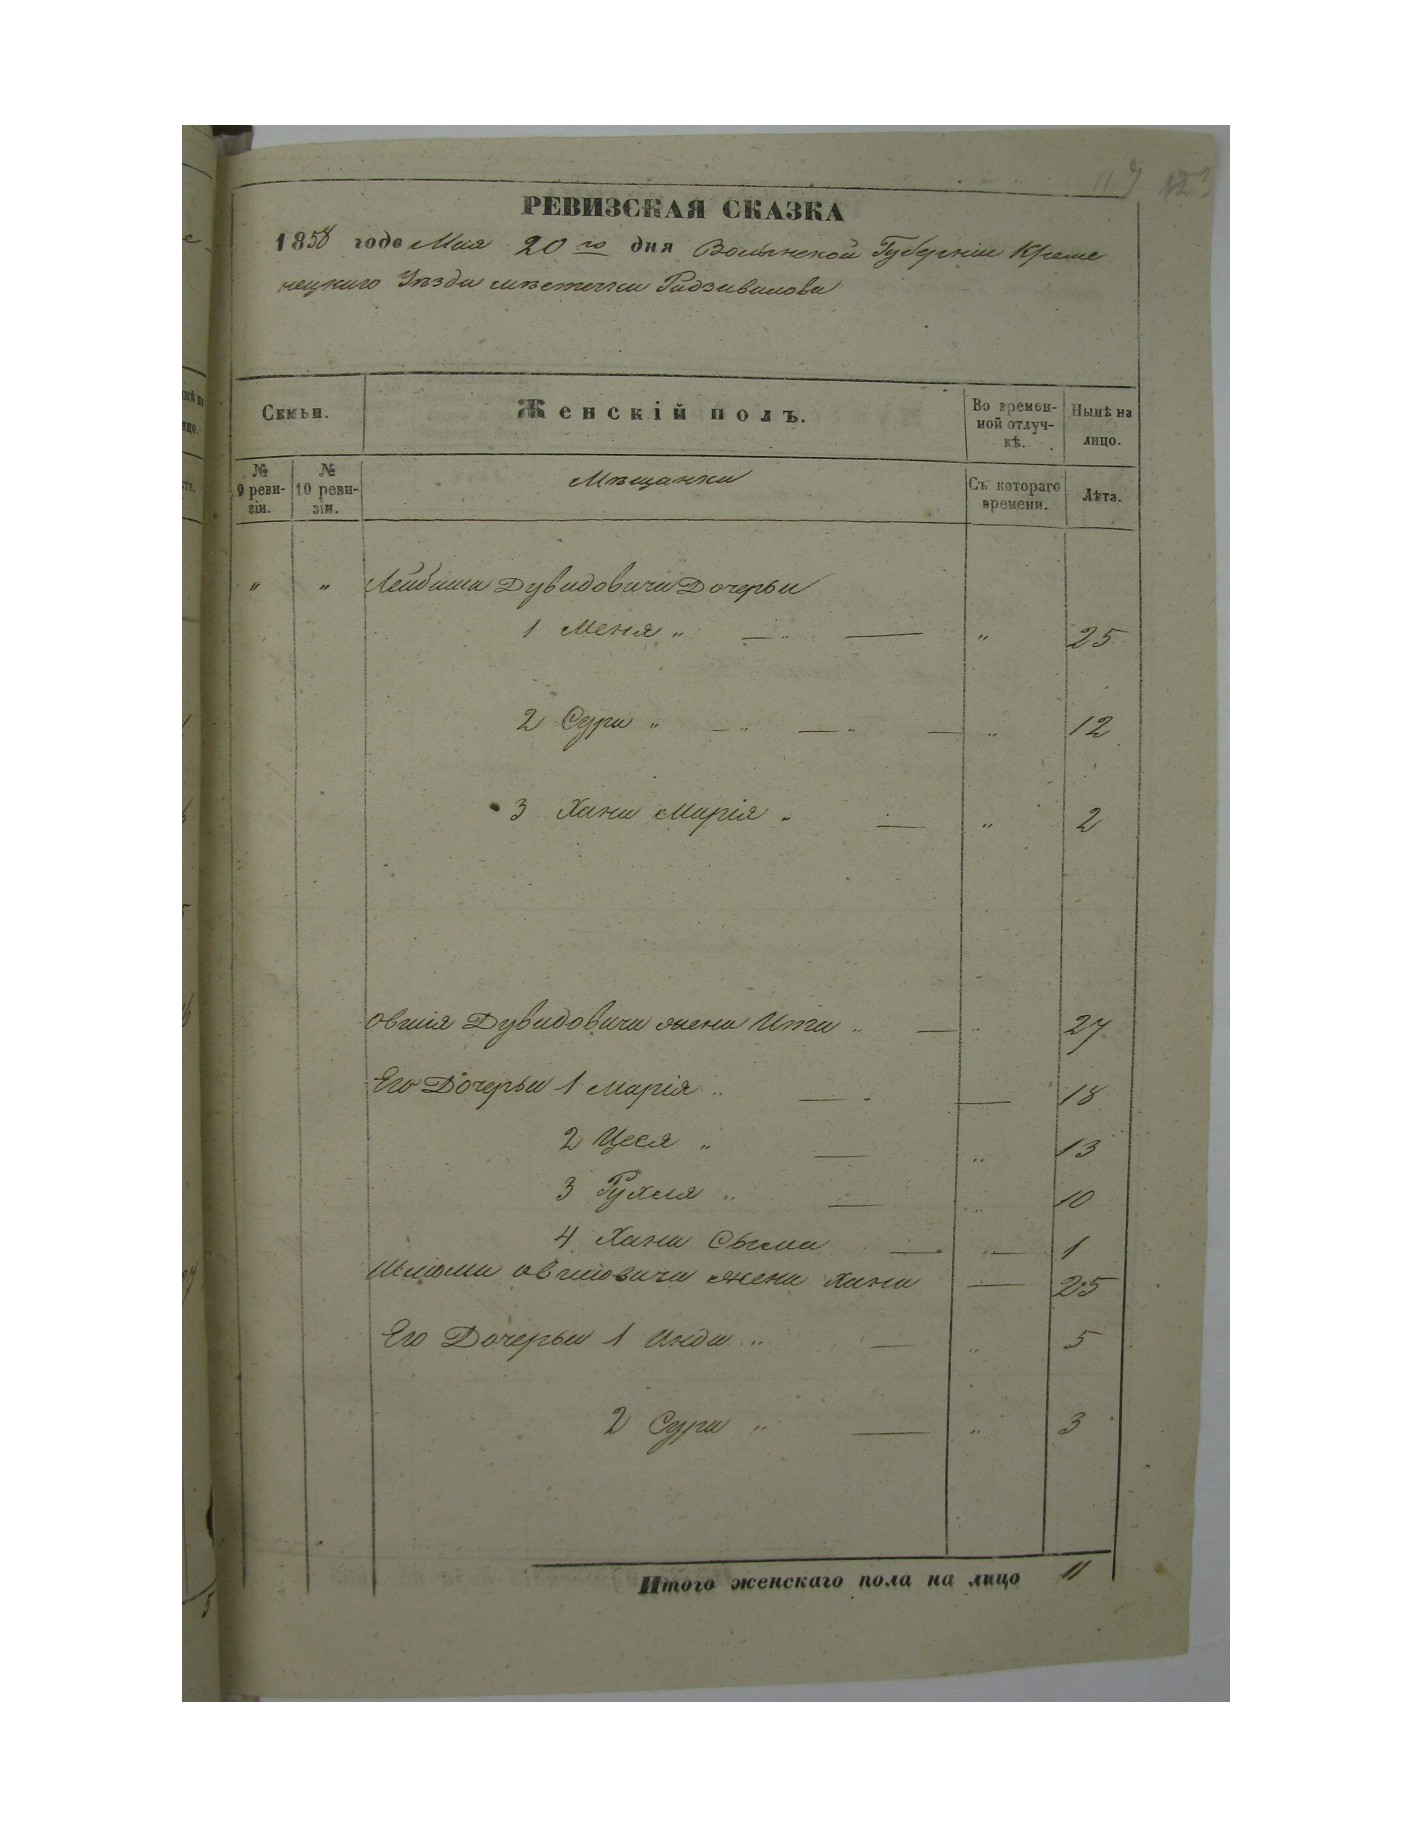 119 123
РЕВИЗСКАЯ СКАЗКА
1858 года Мая 20го дня Волынской Губерніи Креме
нецкаго Уѣзда мѣстечка Радзивилова
Семьи. Женскій полъ. Во времен-ной отлуч-кѣ. Нынѣ на лицо.
№ 9 реви-зіи. № 10 реви-зіи. Мѣщанки Съ котораго времени. Лѣта.
" " Лейбиша Дувидовича Дочерьи
1 Меня " — " — " 25
2 Сура " — " — " — " 12
3 Хана Марія " — " 2
Овшія Дувидовича жена Ита " — " 27
Его Дочерьи 1 Марія " — " — 18
2 Цеся " — " 13
3 Рухля " — " 10
4 Хана Сыма — " — 1
Шлиома Овшіовича жена Хана — 25
Его Дочерьи 1 Инда " — " 5
2 Сура " — " 3
Итого женскаго пола на лицо 11